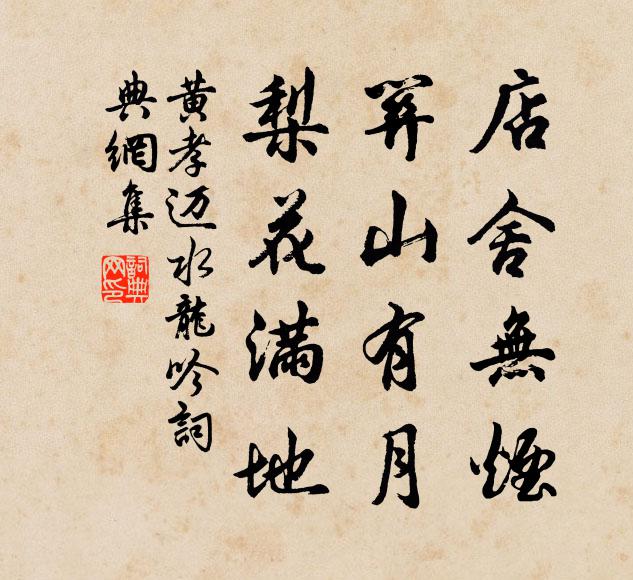 店舍無煙
關山有月
梨花滿地
黄孝迈水龍吟詞
典網集
詞典
网印